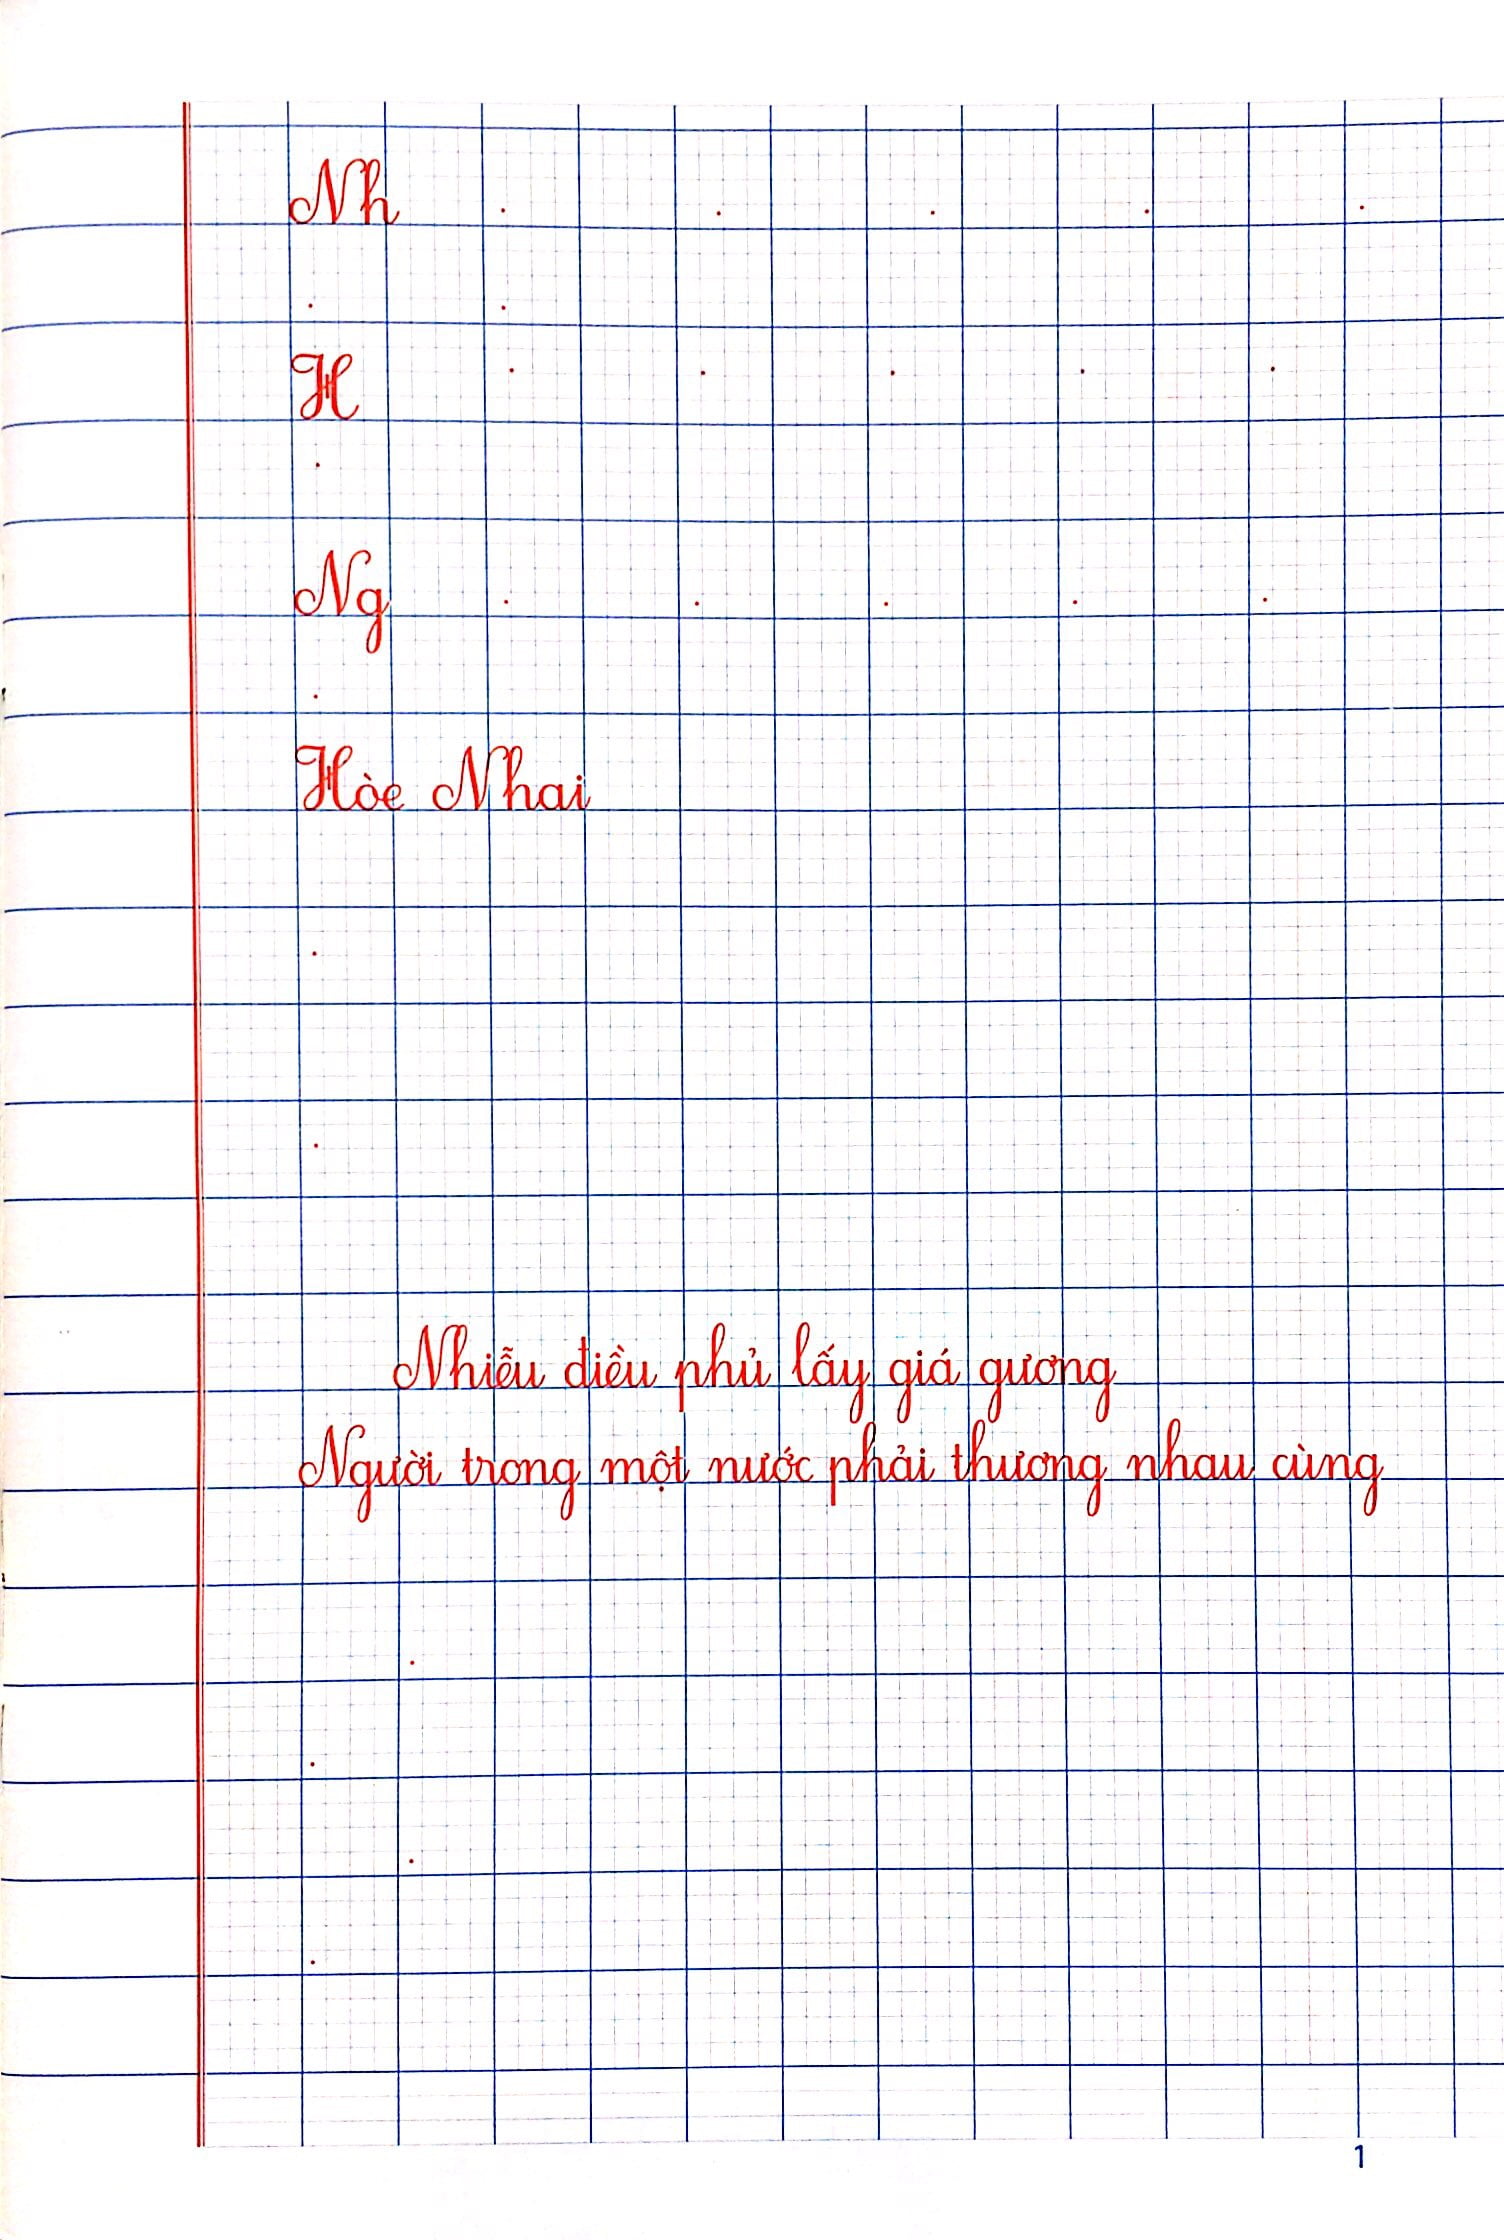 Nh
H
Ng
Hòe Nhai
Nhiễu điều phủ lấy giá gương
Người trong một nước phải thương nhau cùng
1